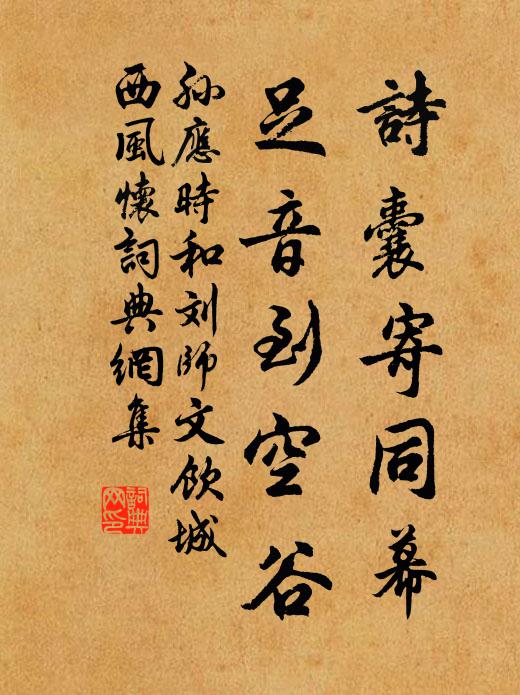 詩囊寄同幕
足音到空谷
孙應時和刘師文飲城
西風懷詞典網集
詞典
网印